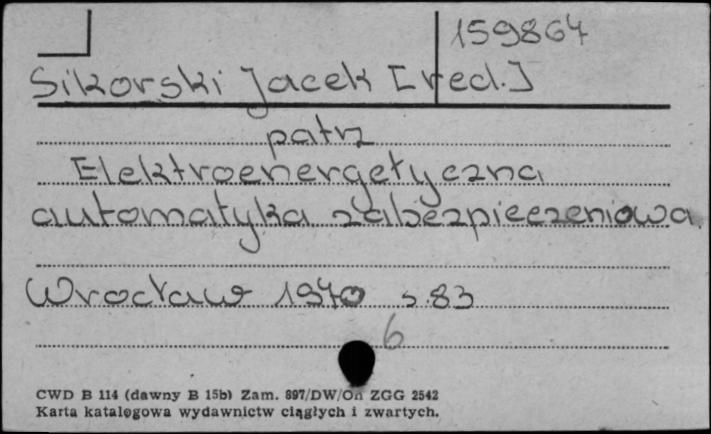 159864
Sikorski Jacek [red.]
patrz
Elektroenergetyczna
automatyka zabezpieczeniowa.
Wrocław 1970 s. 83
6
CWD B 114 (dawny B 15b) Zam. 897/DW/On ZGG 2542
Karta katalogowa wydawnictw ciągłych i zwartych.